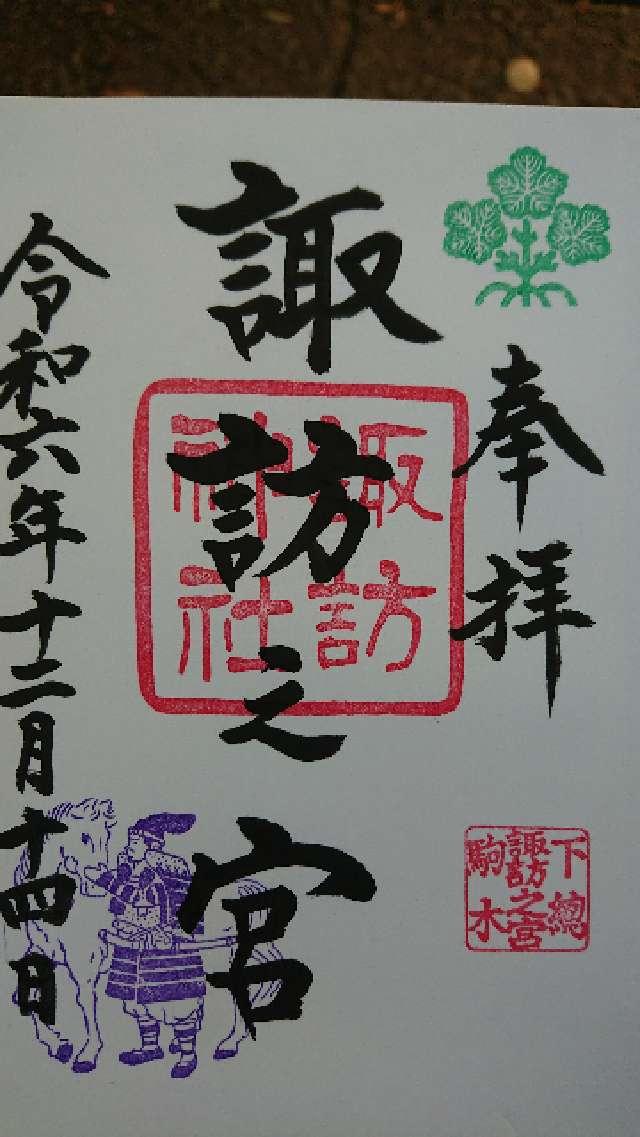 奉拝
下總
諏訪之宮
駒木
諏訪之宮
諏訪
神社
令和六年十二月十四日